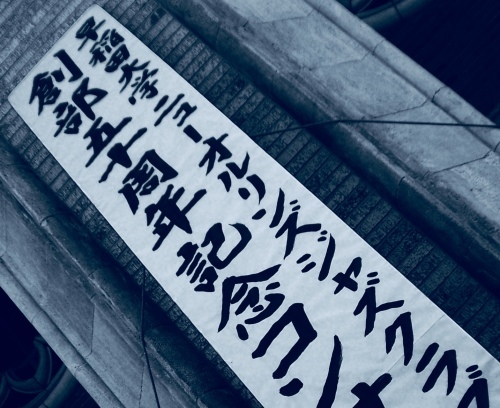 早稲田大学ニューオルリンズジャズクラブ
創部五十周年記念コン